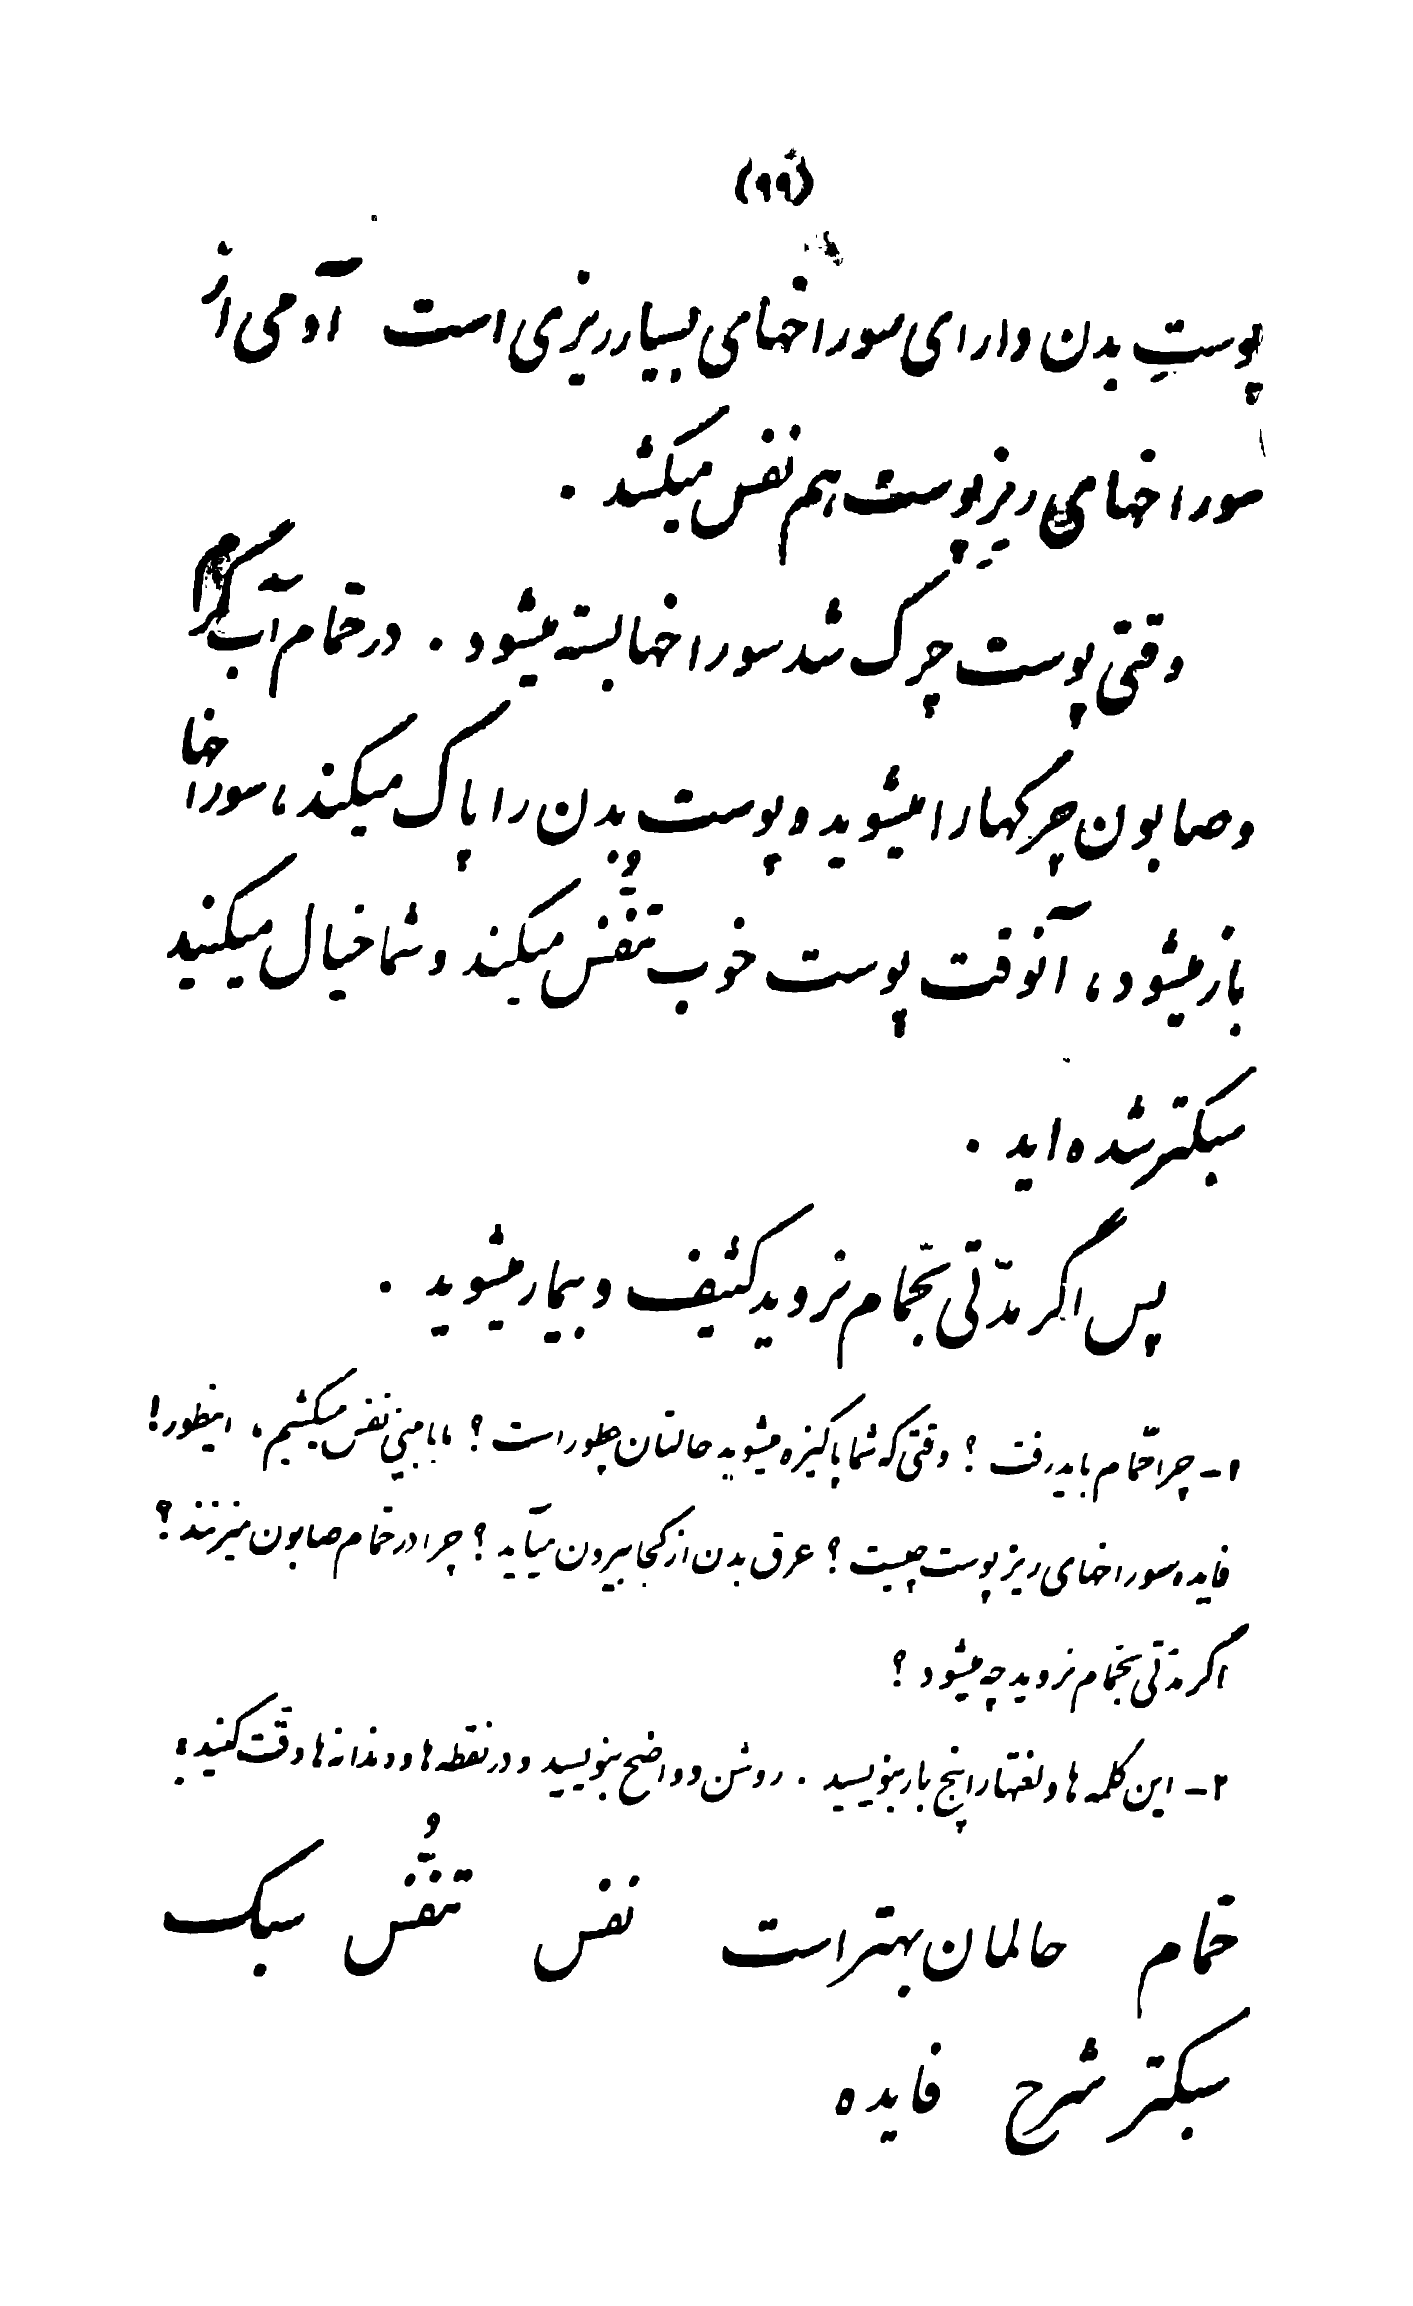 (۹۹)
پوستِ بدن دارای سوراخهای بسیار ریزی است آدمی از
سوراخهای ریز پوست هم نفس میکشد .
وقتی پوست چرک شد سوراخها بسته میشود . در حمّام آب گرم
و صابون چرکها را میشوید و پوست بدن را پاک میکند ، سوراخها
باز میشود ، آنوقت پوست خوب تنفُّس میکند و شما خیال میکنید
سبکتر شده اید .
پس اگر مدّتی بحمّام نروید کثیف و بیمار میشوید .
۱- چرا حمّام باید رفت ؟ وقتی که شما پاکیزه میشوید حالتان چطور است ؟ ما با بینی نفس میکشیم ، اینطور !
فایده سوراخهای ریز پوست چیست ؟ عرق بدن از کجا بیرون میآید ؟ چرا در حمّام صابون میزنند ؟
اگر مدّتی بحمّام نروید چه میشود ؟
۲- این کلمه ها و لغتها را پنج بار بنویسید . روشن و واضح بنویسید و در نقطه ها و دندانه ها دقّت کنید :
حمّام حالمان بهتر است نفس تنفُّس سبک
سبکتر شرح فایده